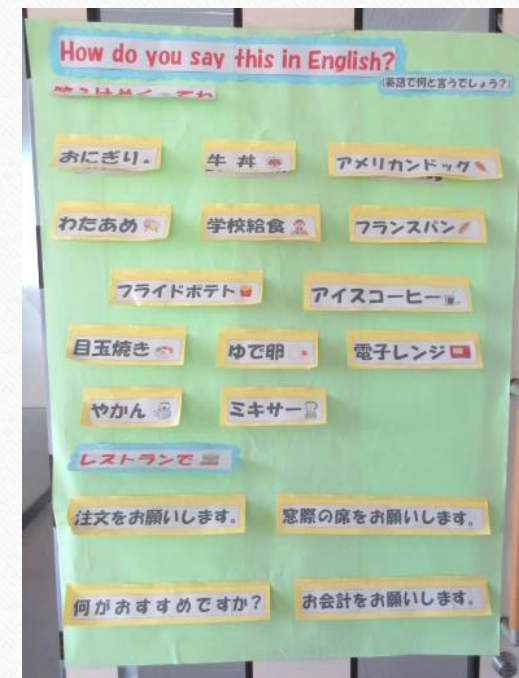 How do you say this in English?
(英語で何と言うでしょう?)
答えはめくってね
おにぎり
牛丼
アメリカンドッグ
わたあめ
学校給食
フランスパン
フライドポテト
アイスコーヒー
目玉焼き
ゆで卵
電子レンジ
やかん
ミキサー
レストランで
注文をお願いします。
窓際の席をお願いします。
何がおすすめですか?
お会計をお願いします。